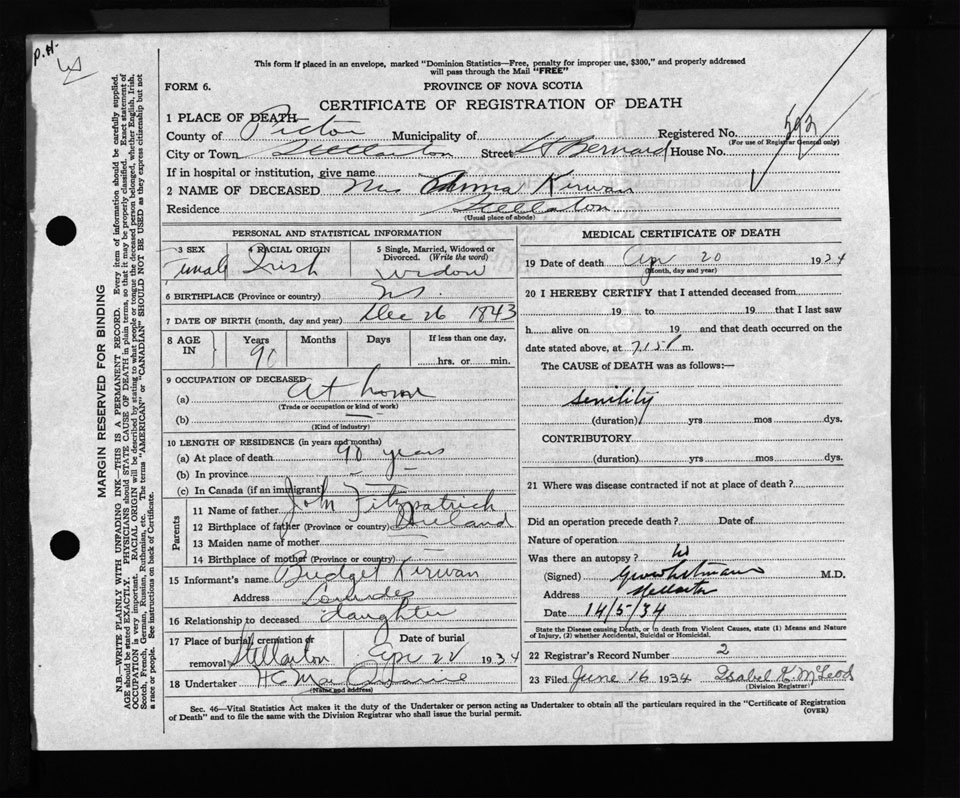 P.H.
This form if placed in an envelope, marked "Dominion Statistics—Free, penalty for improper use, $300," and properly addressed
will pass through the Mail "FREE"
FORM 6.
PROVINCE OF NOVA SCOTIA
CERTIFICATE OF REGISTRATION OF DEATH
1 PLACE OF DEATH
County of Pictou Municipality of Registered No. 592
(For use of Registrar General only)
City or Town Stellarton Street St Bernard House No.
If in hospital or institution, give name
2 NAME OF DECEASED Mrs Anna Kirwan
Residence Stellarton
(Usual place of abode)
PERSONAL AND STATISTICAL INFORMATION
3 SEX 4 RACIAL ORIGIN 5 Single, Married, Widowed or
Divorced. (Write the word)
Female Irish widow
6 BIRTHPLACE (Province or country) N.S.
7 DATE OF BIRTH (month, day and year) Dec 26 1843
8 AGE IN Years Months Days If less than one day,
90 hrs. or min.
9 OCCUPATION OF DECEASED
(a) At home
(Trade or occupation or kind of work)
(b) —
(Kind of industry)
10 LENGTH OF RESIDENCE (in years and months)
(a) At place of death 90 years
(b) In province — -
(c) In Canada (if an immigrant)
Parents
11 Name of father John Fitzpatrick
12 Birthplace of father (Province or country) Ireland
13 Maiden name of mother —
14 Birthplace of mother (Province or country) —
15 Informant's name Bridget Kirwan
Address Lourdes
16 Relationship to deceased daughter
17 Place of burial, cremation or
removal Stellarton
Date of burial
Apr 22 1934
18 Undertaker
(Name and address)
MEDICAL CERTIFICATE OF DEATH
19 Date of death Apr 20 1934
(Month, day and year)
20 I HEREBY CERTIFY that I attended deceased from
19 to 19 that I last saw
h alive on 19 and that death occurred on
date stated above, at 7.15 P m.
The CAUSE of DEATH was as follows:—
Senility
(duration) yrs mos dys.
CONTRIBUTORY
(duration) yrs mos dys.
21 Where was disease contracted if not at place of death?
Did an operation precede death? Date of
Nature of operation
Was there an autopsy?
(Signed) M.D.
Address Stellarton
Date 14/5/34
State the Disease causing Death, or in death from Violent Causes, state (1) Means and Nature
of Injury, (2) whether Accidental, Suicidal or Homicidal.
22 Registrar's Record Number 2
23 Filed June 16 1934 Isabel K. McLeod
(Division Registrar)
Sec. 46—Vital Statistics Act makes it the duty of the Undertaker or person acting as Undertaker to obtain all the particulars required in the "Certificate of Registration
of Death" and to file the same with the Division Registrar who shall issue the burial permit. (OVER)
MARGIN RESERVED FOR BINDING
N.B.—WRITE PLAINLY WITH UNFADING INK—THIS IS A PERMANENT RECORD. Every item of information should be carefully supplied.
AGE should be stated EXACTLY. PHYSICIANS should STATE CAUSE OF DEATH in plain terms, so that it may be properly classified. Exact statement of
OCCUPATION is very important. RACIAL ORIGIN will be described by stating to what people or tongue the deceased person belonged, whether English, Irish,
Scotch, French, German, Russian, Ruthenian, etc. The terms "AMERICAN" or "CANADIAN" SHOULD NOT BE USED as they express citizenship but not
a race or people. See instructions on back of Certificate.